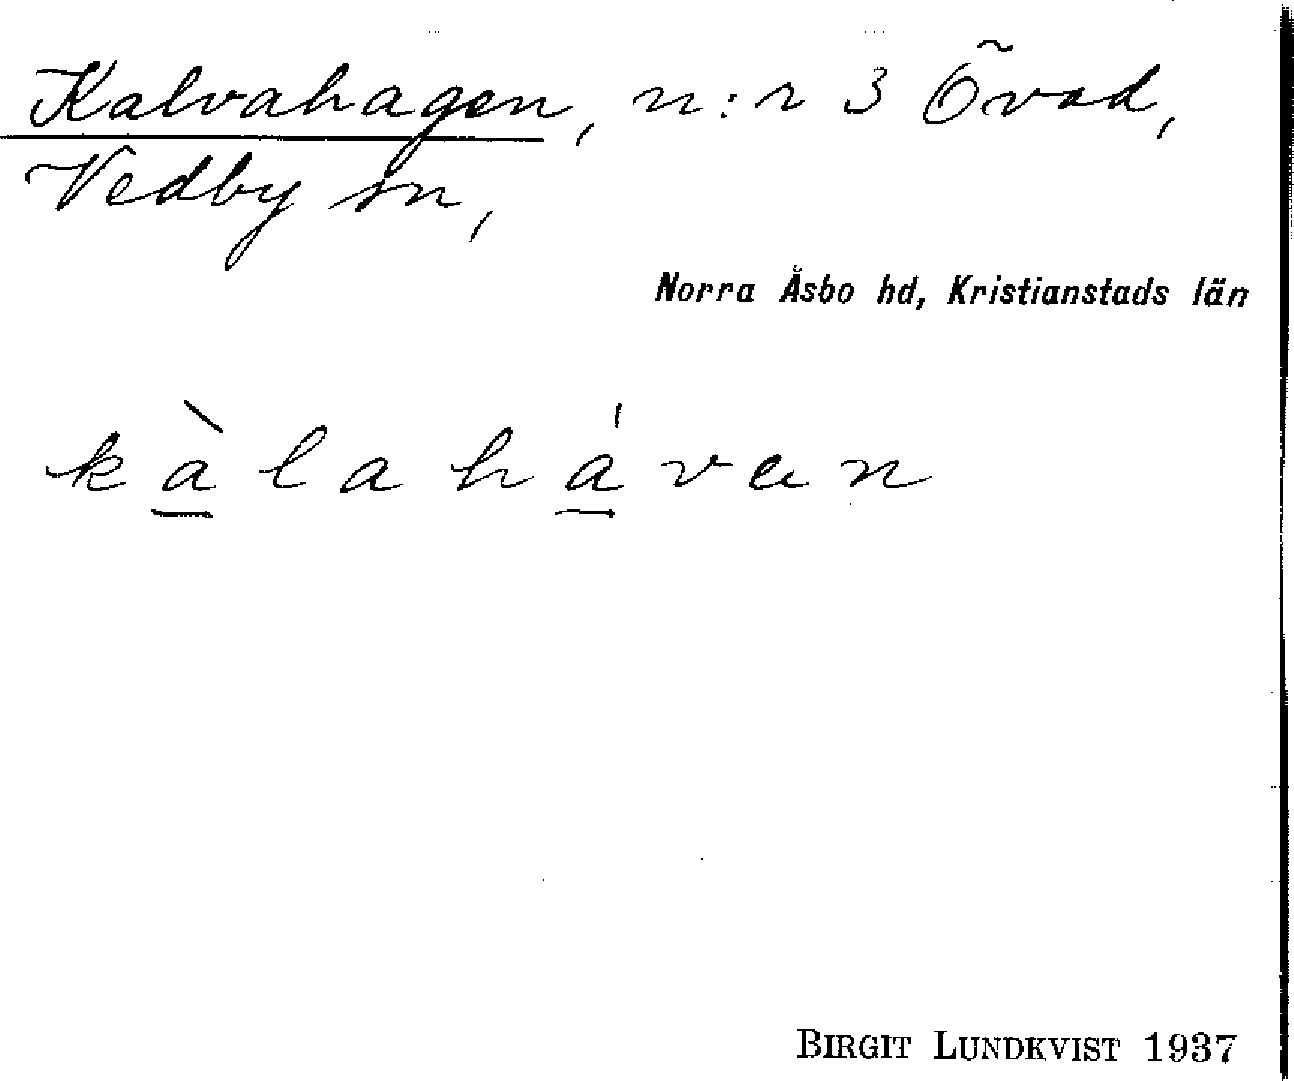 Kalvahagen, n:r 3 Övad,
Vedby sn,
Norra Åsbo hd, Kristianstads län
kàlahávan
BIRGIT LUNDKVIST 1937